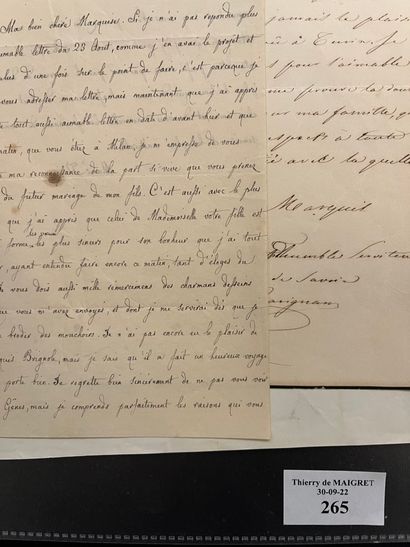 Ma bien chère Marquise. Si je n'ai pas répondu plus
aimable lettre du 28 Août, comme j'en avais le projet et
plus d'une fois sur le point de faire, c'est parceque je
vous adresser ma lettre, mais maintenant que j'ai appris
tout aussi aimable lettre en date d'avant hier et que
matin, que vous étiez à Milan, je m'empresse de vous
ma reconnaissance de la part si vive que vous prenez
du futur mariage de mon fils. C'est aussi avec le plus
que j'ai appris que celui de Mademoiselle votre fille est
forme les vœux les plus sincers pour son bonheur que j'ai tout
, ayant entendu faire encore ce matin, tant d'éloges du
vous dois aussi mille remerciemens des charmans desseins
que vous m'avez envoyés, et dont je me servirai dès que je
à broder des mouchoirs. Je n'ai pas encore eu le plaisir de
quis Brignole, mais je sais qu'il a fait un heureux voyage
porte bien. Je regrette bien sincèrement de ne pas vous voir
Gênes, mais je comprends parfaitement les raisons qui vous
jamais le plaisi
à Turin. Je
pour l'aimable
me prouve
ma famille, q
à toute
avec la quelle
Marquis
humble Serviteu
de Savoie
Carignan
Thierry de MAIGRET
30-09-22
265